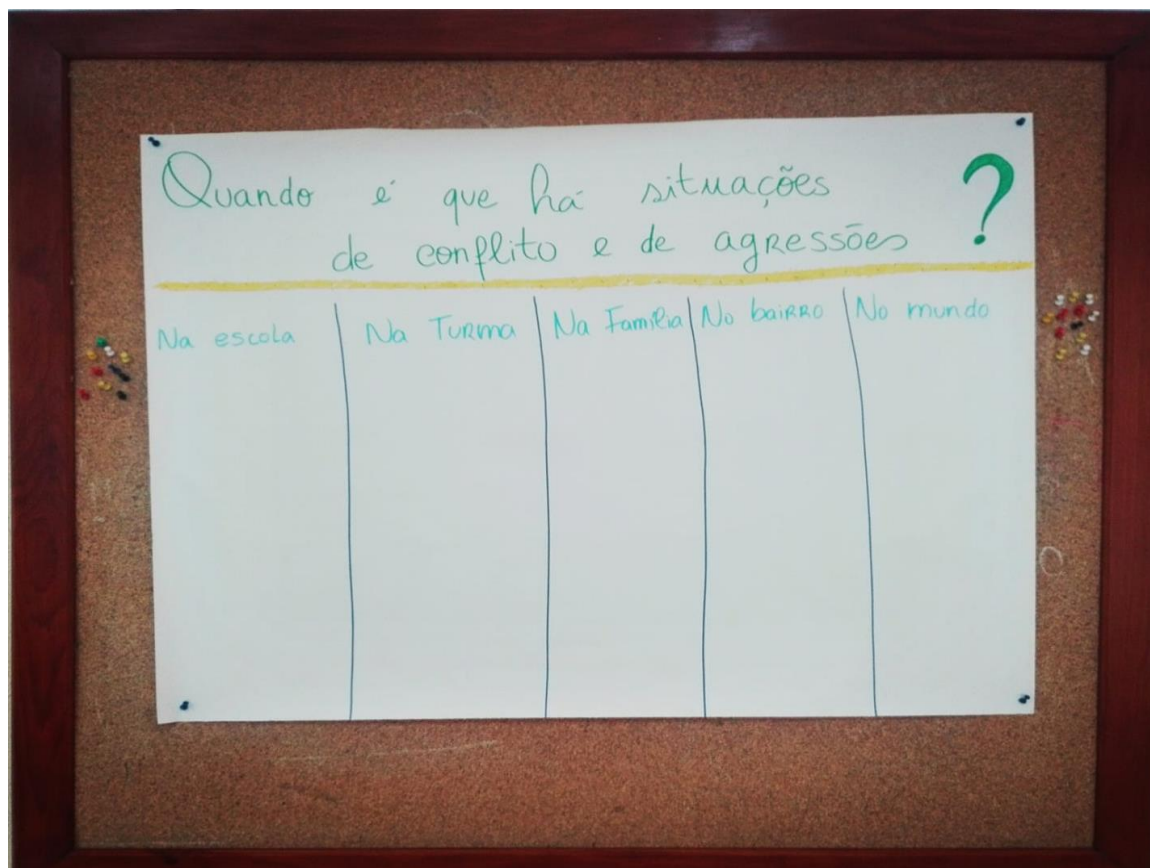 Quando é que há situações ?
de conflito e de agressões
Na escola
Na Turma
Na Família
No bairro
No mundo